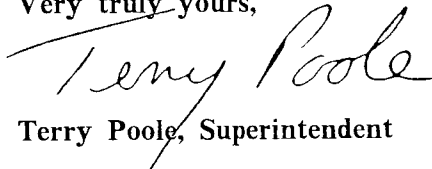 Very truly yours,
Terry Poole
Terry Poole, Superintendent